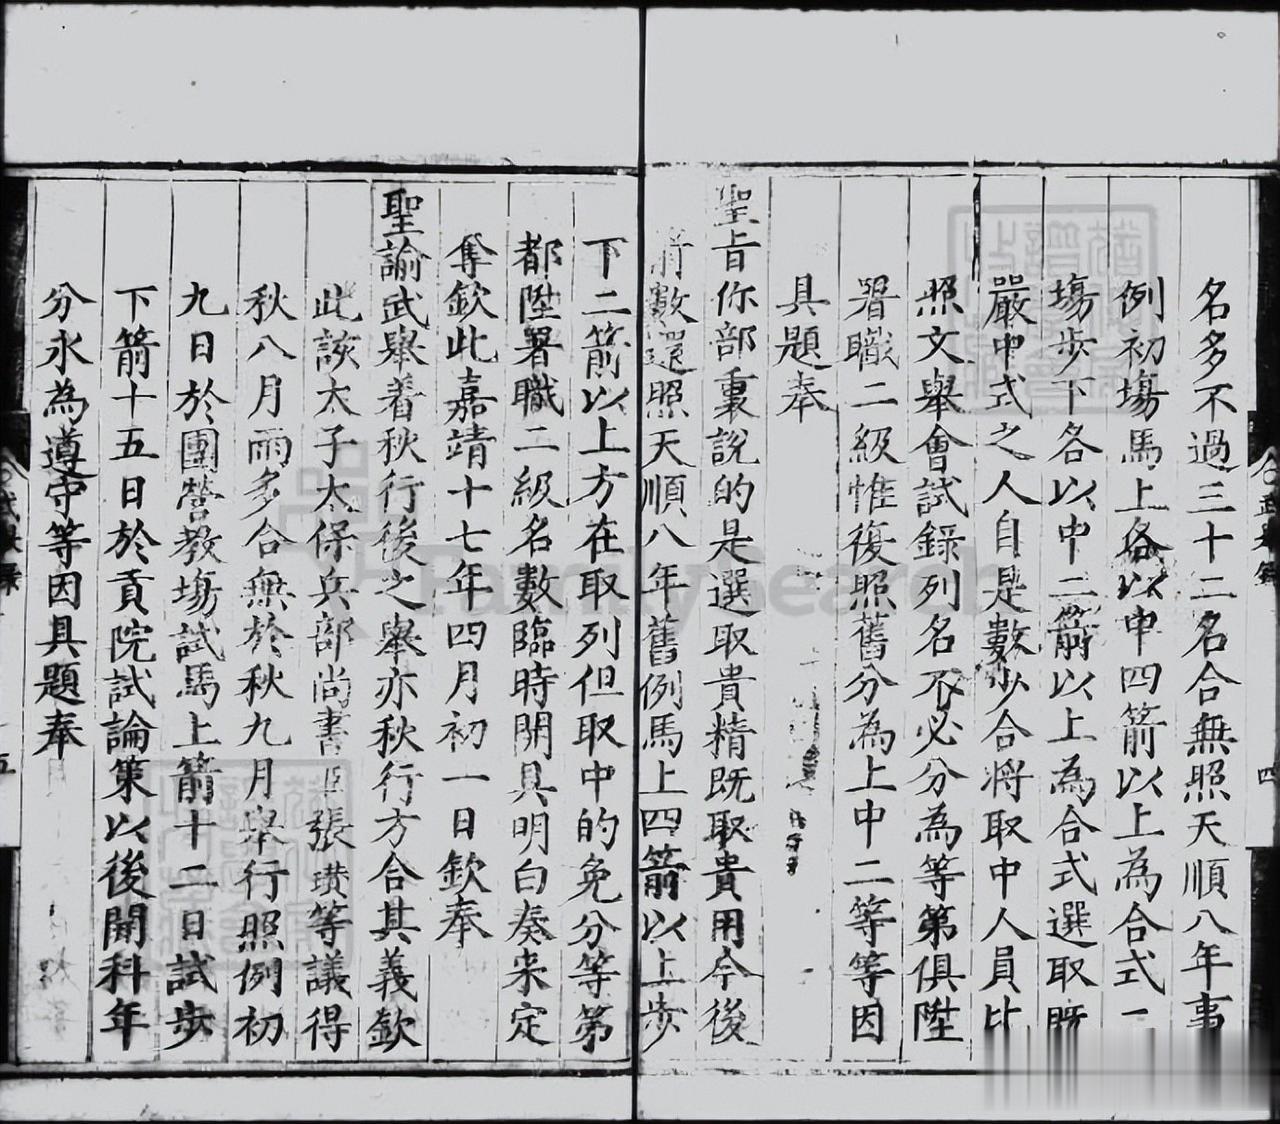 名多不過三十二名合無照天順八年事
例初塲馬上各以中四箭以上為合式二
塲步下各以中二箭以上為合式選取既
嚴中式之人自是數少合將取中人員比
照文舉會試錄列名不必分為等第俱陞
署職二級惟復照舊分為上中二等等因
具題奉
聖旨你部裏說的是選取貴精既取貴用今後
箭數還照天順八年舊例馬上四箭以上步
下二箭以上方在取列但取中的免分等第
都陞署職二級名數臨時開具明白奏來定
奪欽此嘉靖十七年四月初一日欽奉
聖諭武舉着秋行後之舉亦秋行方合其義欽
此該太子太保兵部尚書臣張瓚等議得
秋八月雨多合無於秋九月舉行照例初
九日於團營教塲試馬上箭十二日試步
下箭十五日於貢院試論策以後開科年
分永為遵守等因具題奉
四
五
FamilySearch